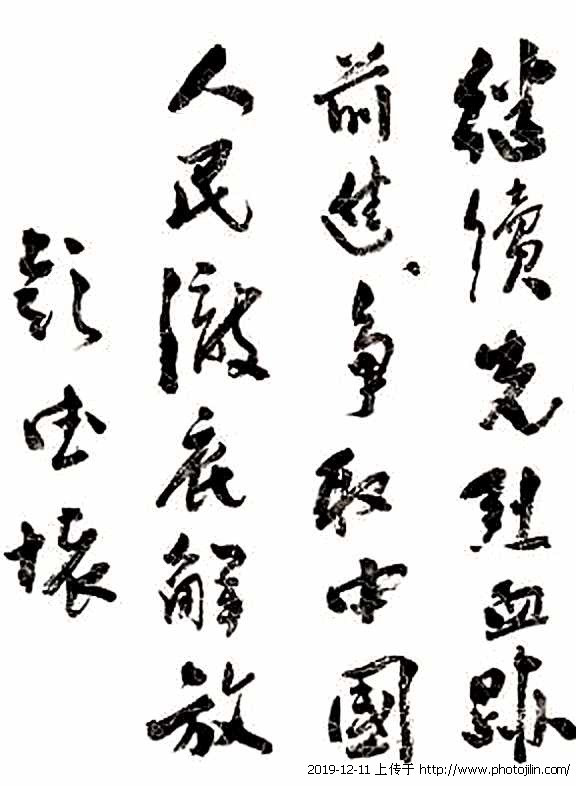 继續先烈血跡
前進、争取中國
人民澈底解放
彭德懷
2019-12-11 上传于 http://www.photojilin.com/